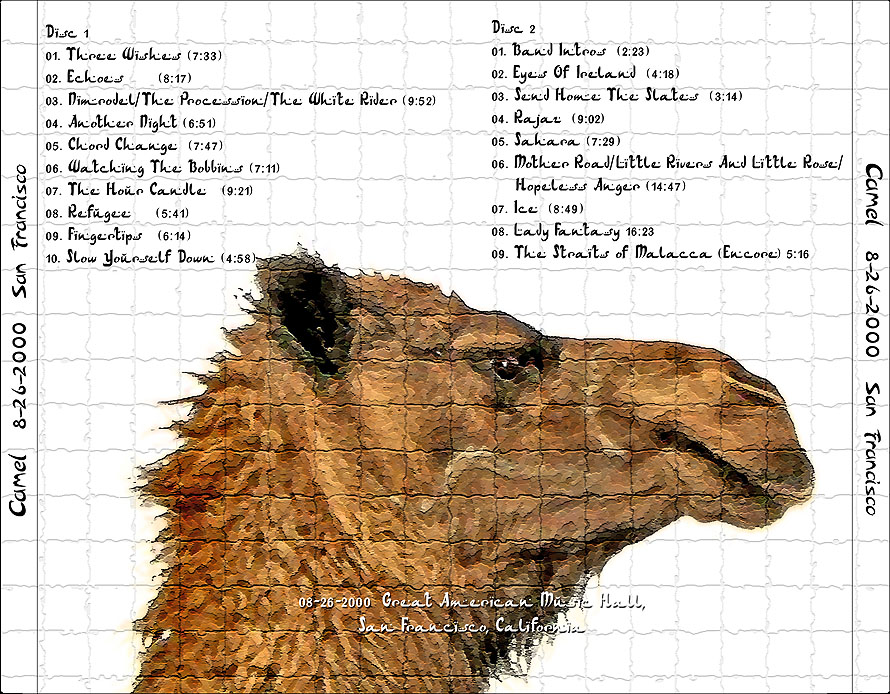 Disc 1
01. Three Wishes (7:33)
02. Echoes (8:17)
03. Nimrodel/The Procession/The White Rider (9:52)
04. Another Night (6:51)
05. Chord Change (7:47)
06. Watching The Bobbins (7:11)
07. The Hour Candle (9:21)
08. Refugee (5:41)
09. Fingertips (6:14)
10. Slow Yourself Down (4:58)
Disc 2
01. Band Intros (2:23)
02. Eyes Of Ireland (4:18)
03. Send Home The Slates (3:14)
04. Rajaz (9:02)
05. Sahara (7:29)
06. Mother Road/Little Rivers And Little Rose/
Hopeless Anger (14:47)
07. Ice (8:49)
08. Lady Fantasy 16:23
09. The Straits of Malacca (Encore) 5:16
Camel 8-26-2000 San Francisco
Camel 8-26-2000 San Francisco
08-26-2000 Great American Music Hall,
San Francisco, California